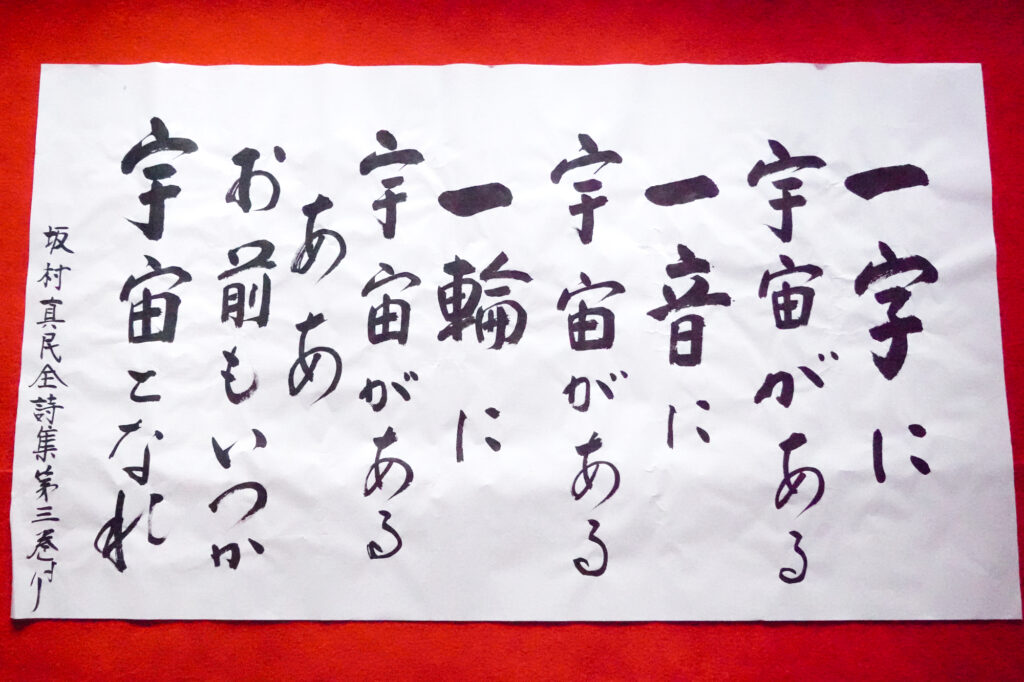 一字に
宇宙がある
一音に
宇宙がある
一輪に
宇宙がある
ああ
お前もいつか
宇宙となれ
坂村真民全詩集第三巻より